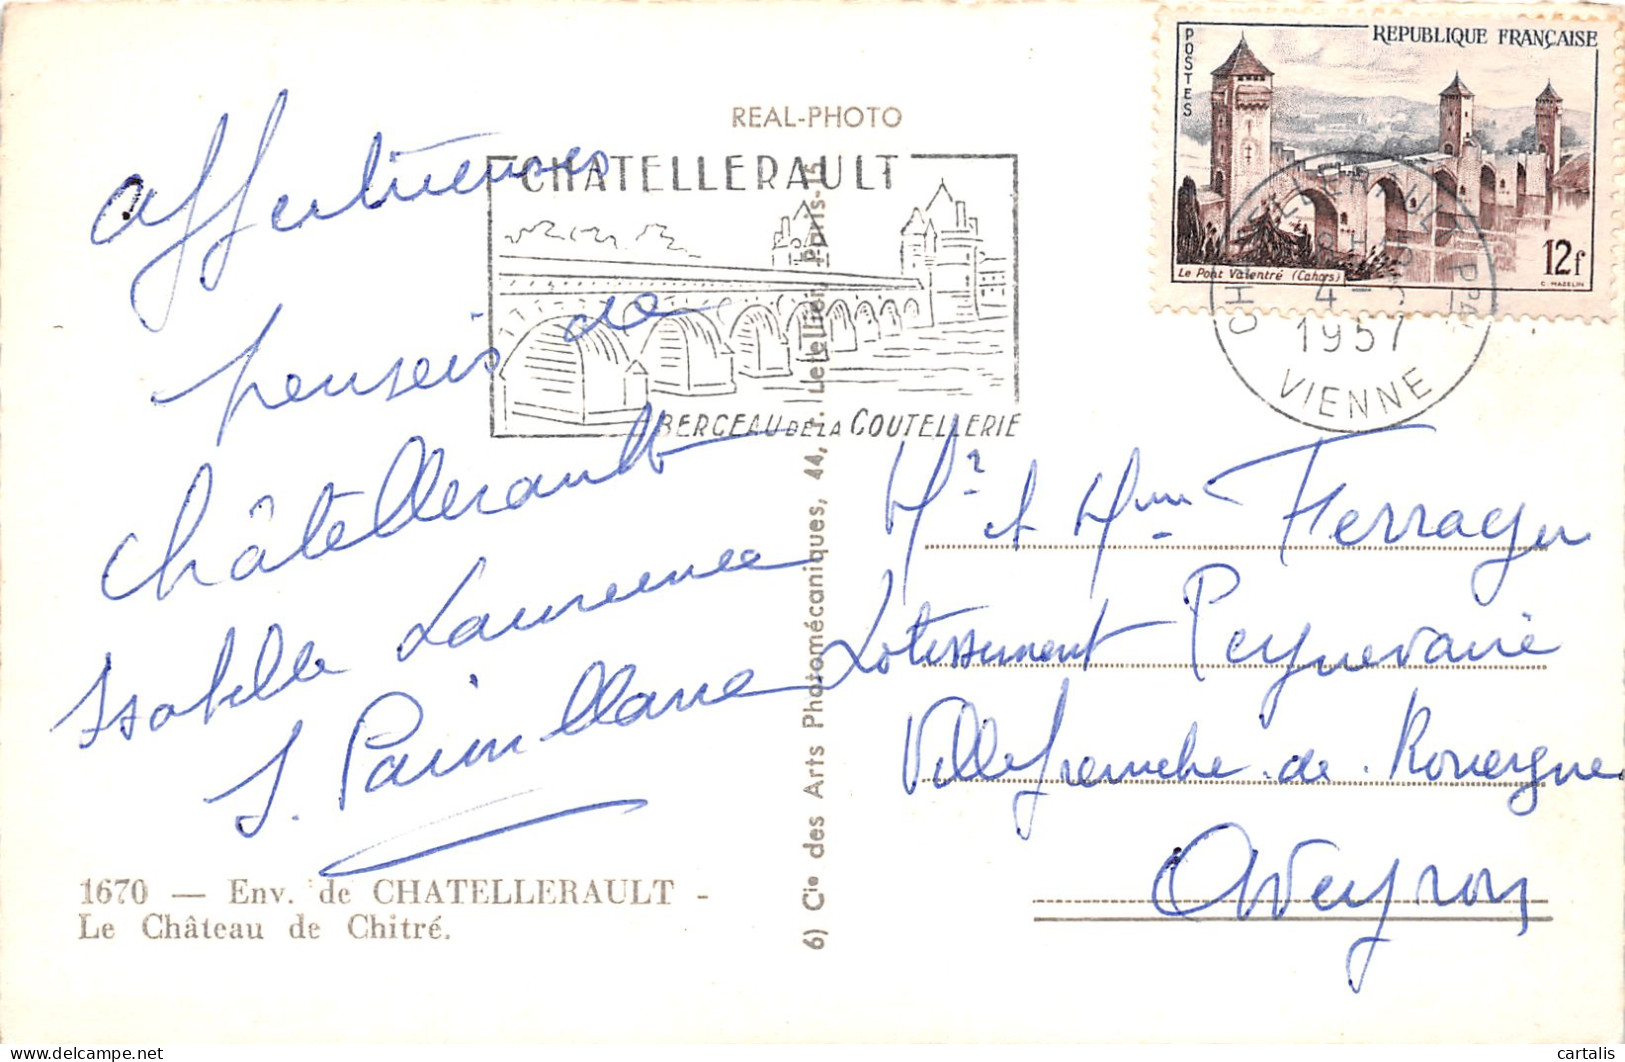 REAL-PHOTO
CHATELLERAULT
BERCEAU DE LA COUTELLERIE
POSTES
REPUBLIQUE FRANÇAISE
Le Pont Valentré (Cahors)
12f
C. MAZELIN
CHATELLERAULT PPAL
4 - 
1957
VIENNE
affectueuses
pensées de
Châtellerault
Isabelle Laurence
J.
Mr et Mme Ferragu
Lotissement Peyrevarié
Villefranche-de-Rouergue
Aveyron
1670 — Env. de CHATELLERAULT -
Le Château de Chitré.
6) Cie des Arts Photomécaniques, 44, r. Letellier, Paris-15
cartalis